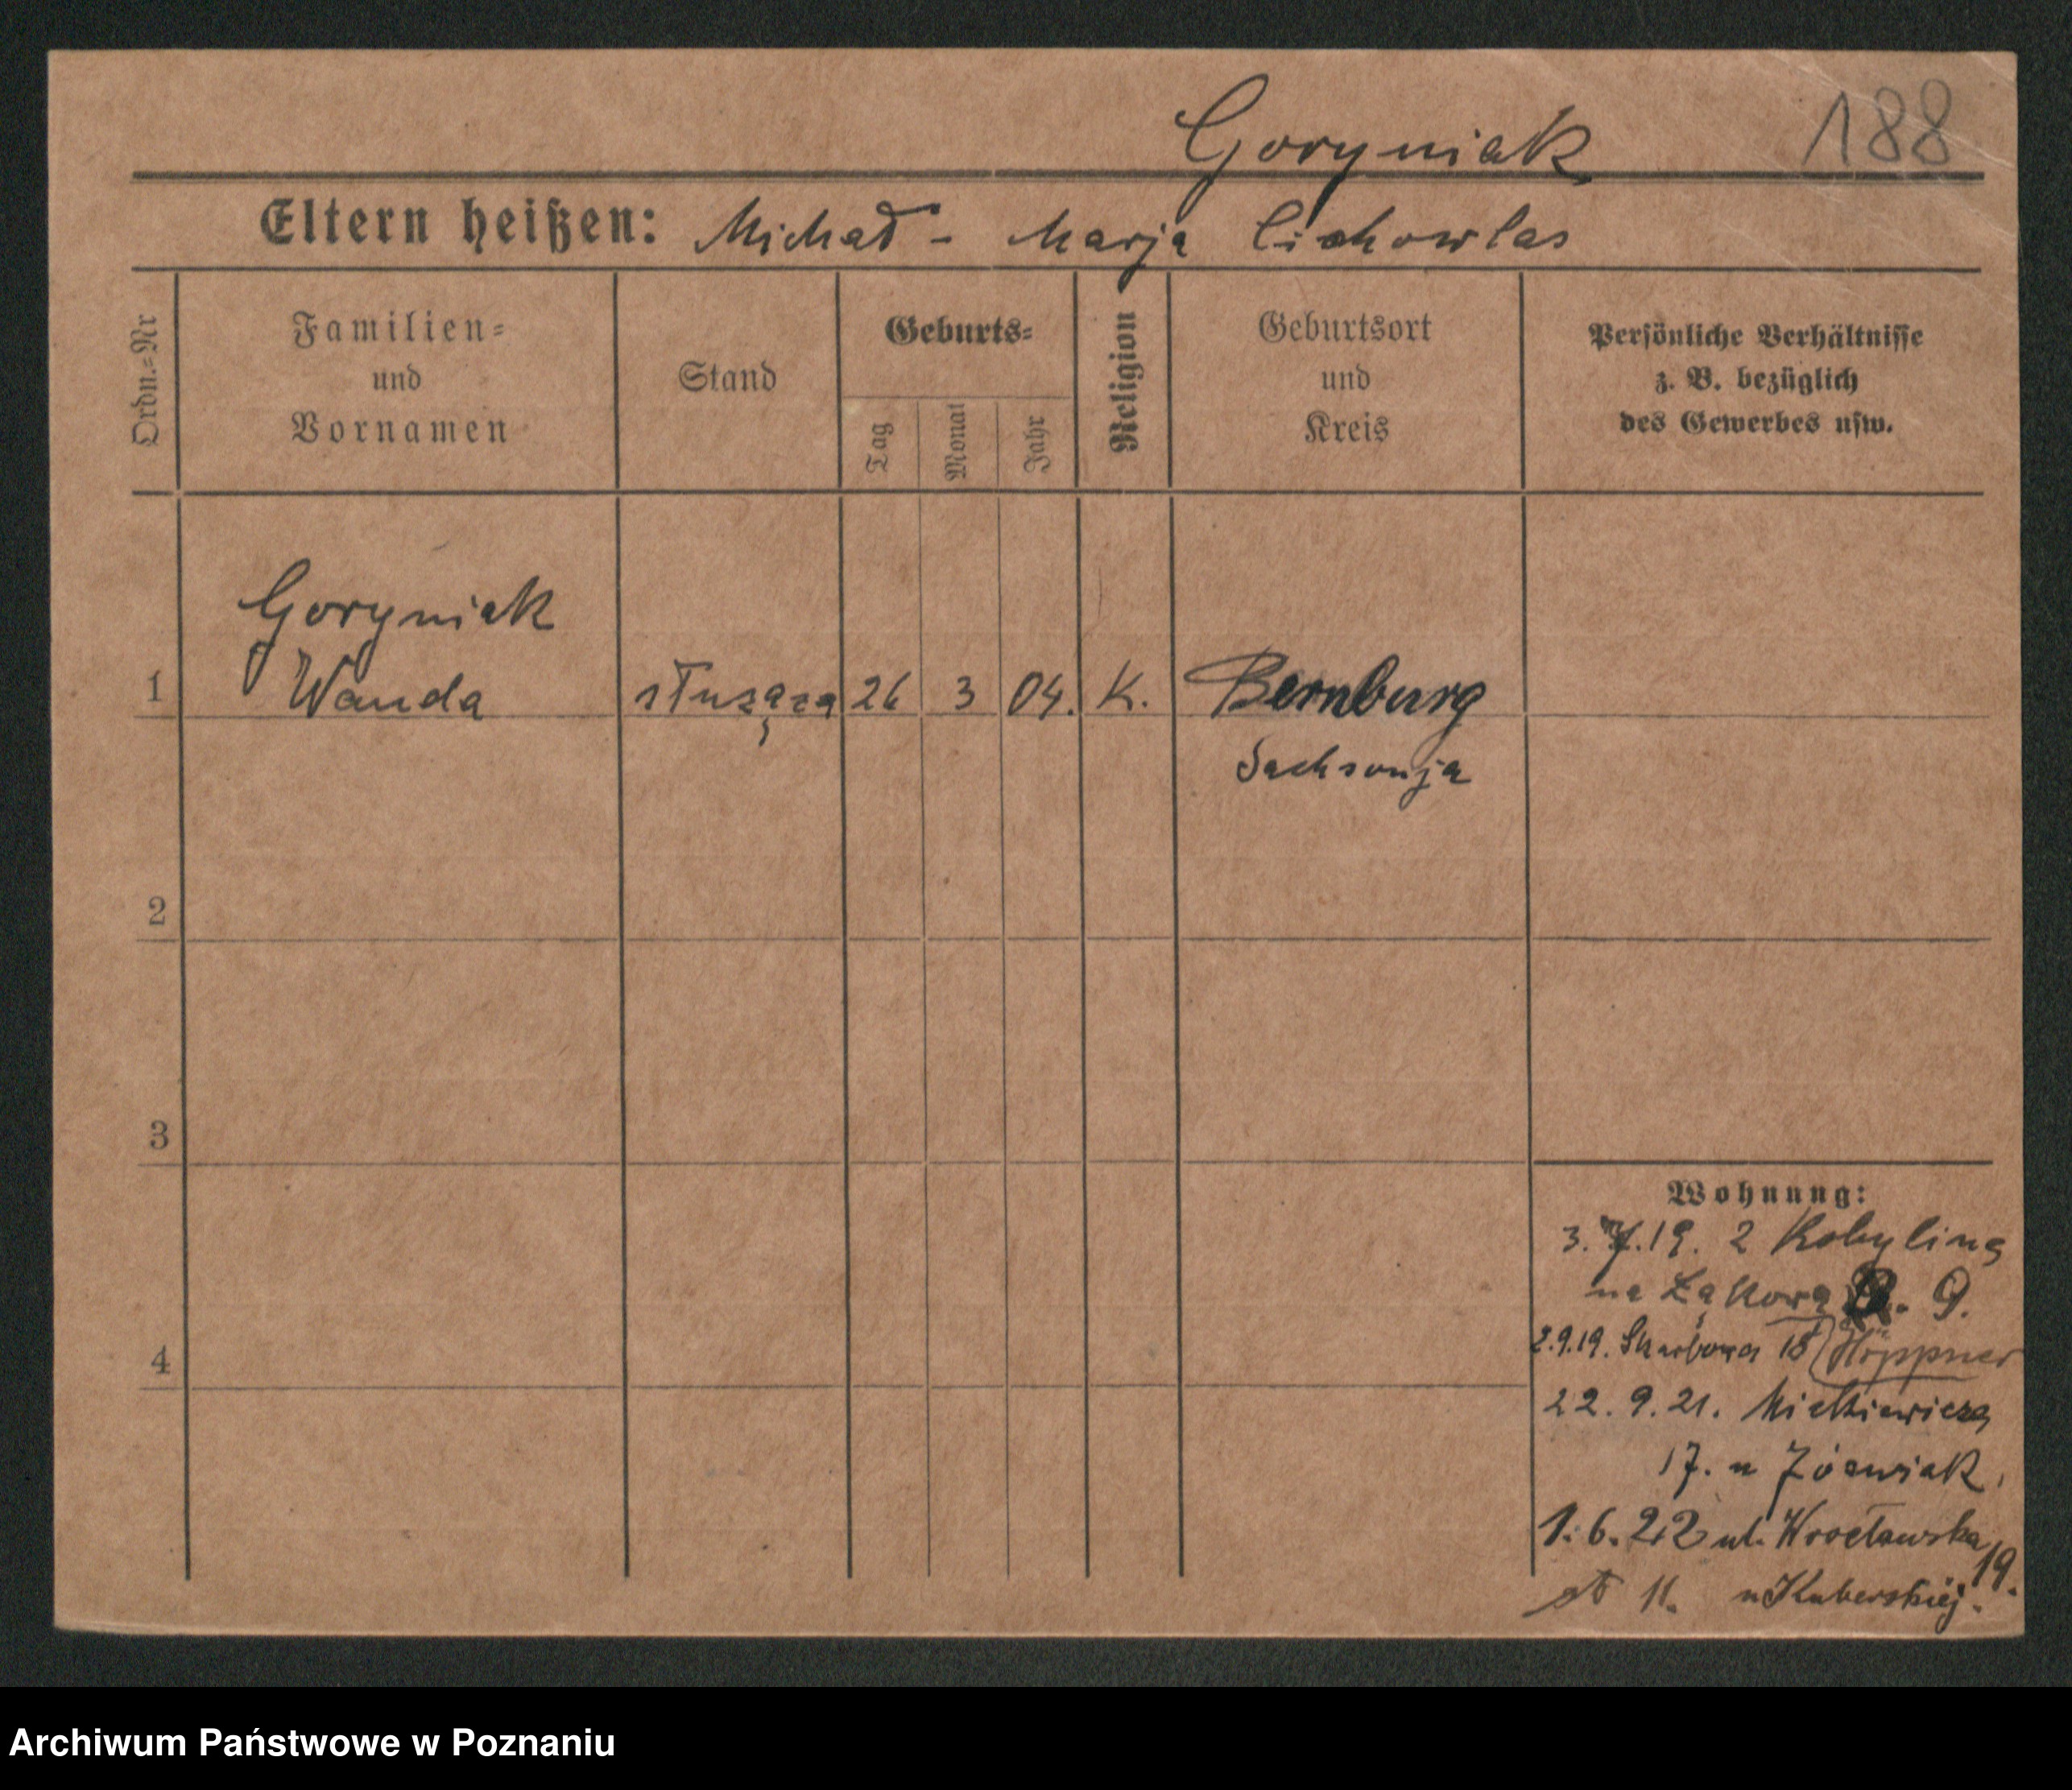 Goryniak 188
Eltern heißen: Michał - Marja Cichowlas
Ordn.=Nr
Familien=
und
Vornamen
Stand
Geburts=
Tag
Monat
Jahr
Religion
Geburtsort
und
Kreis
Persönliche Verhältnisse
z. B. bezüglich
des Gewerbes usw.
Goryniak
1 Wanda służąca 26 3 04. K. Bernburg
Sachsonja
2
3
4
Wohnung:
3. 7.19. z Kobylina
na Łąkową 9.
2.9.19. Skarbowa 18 Höppner
22. 9. 21. Mickiewicza
17. u Jóźwiak
1. 6. 22 ul. Wrocławska 19.
11. u Kuberskiej.
Archiwum Państwowe w Poznaniu